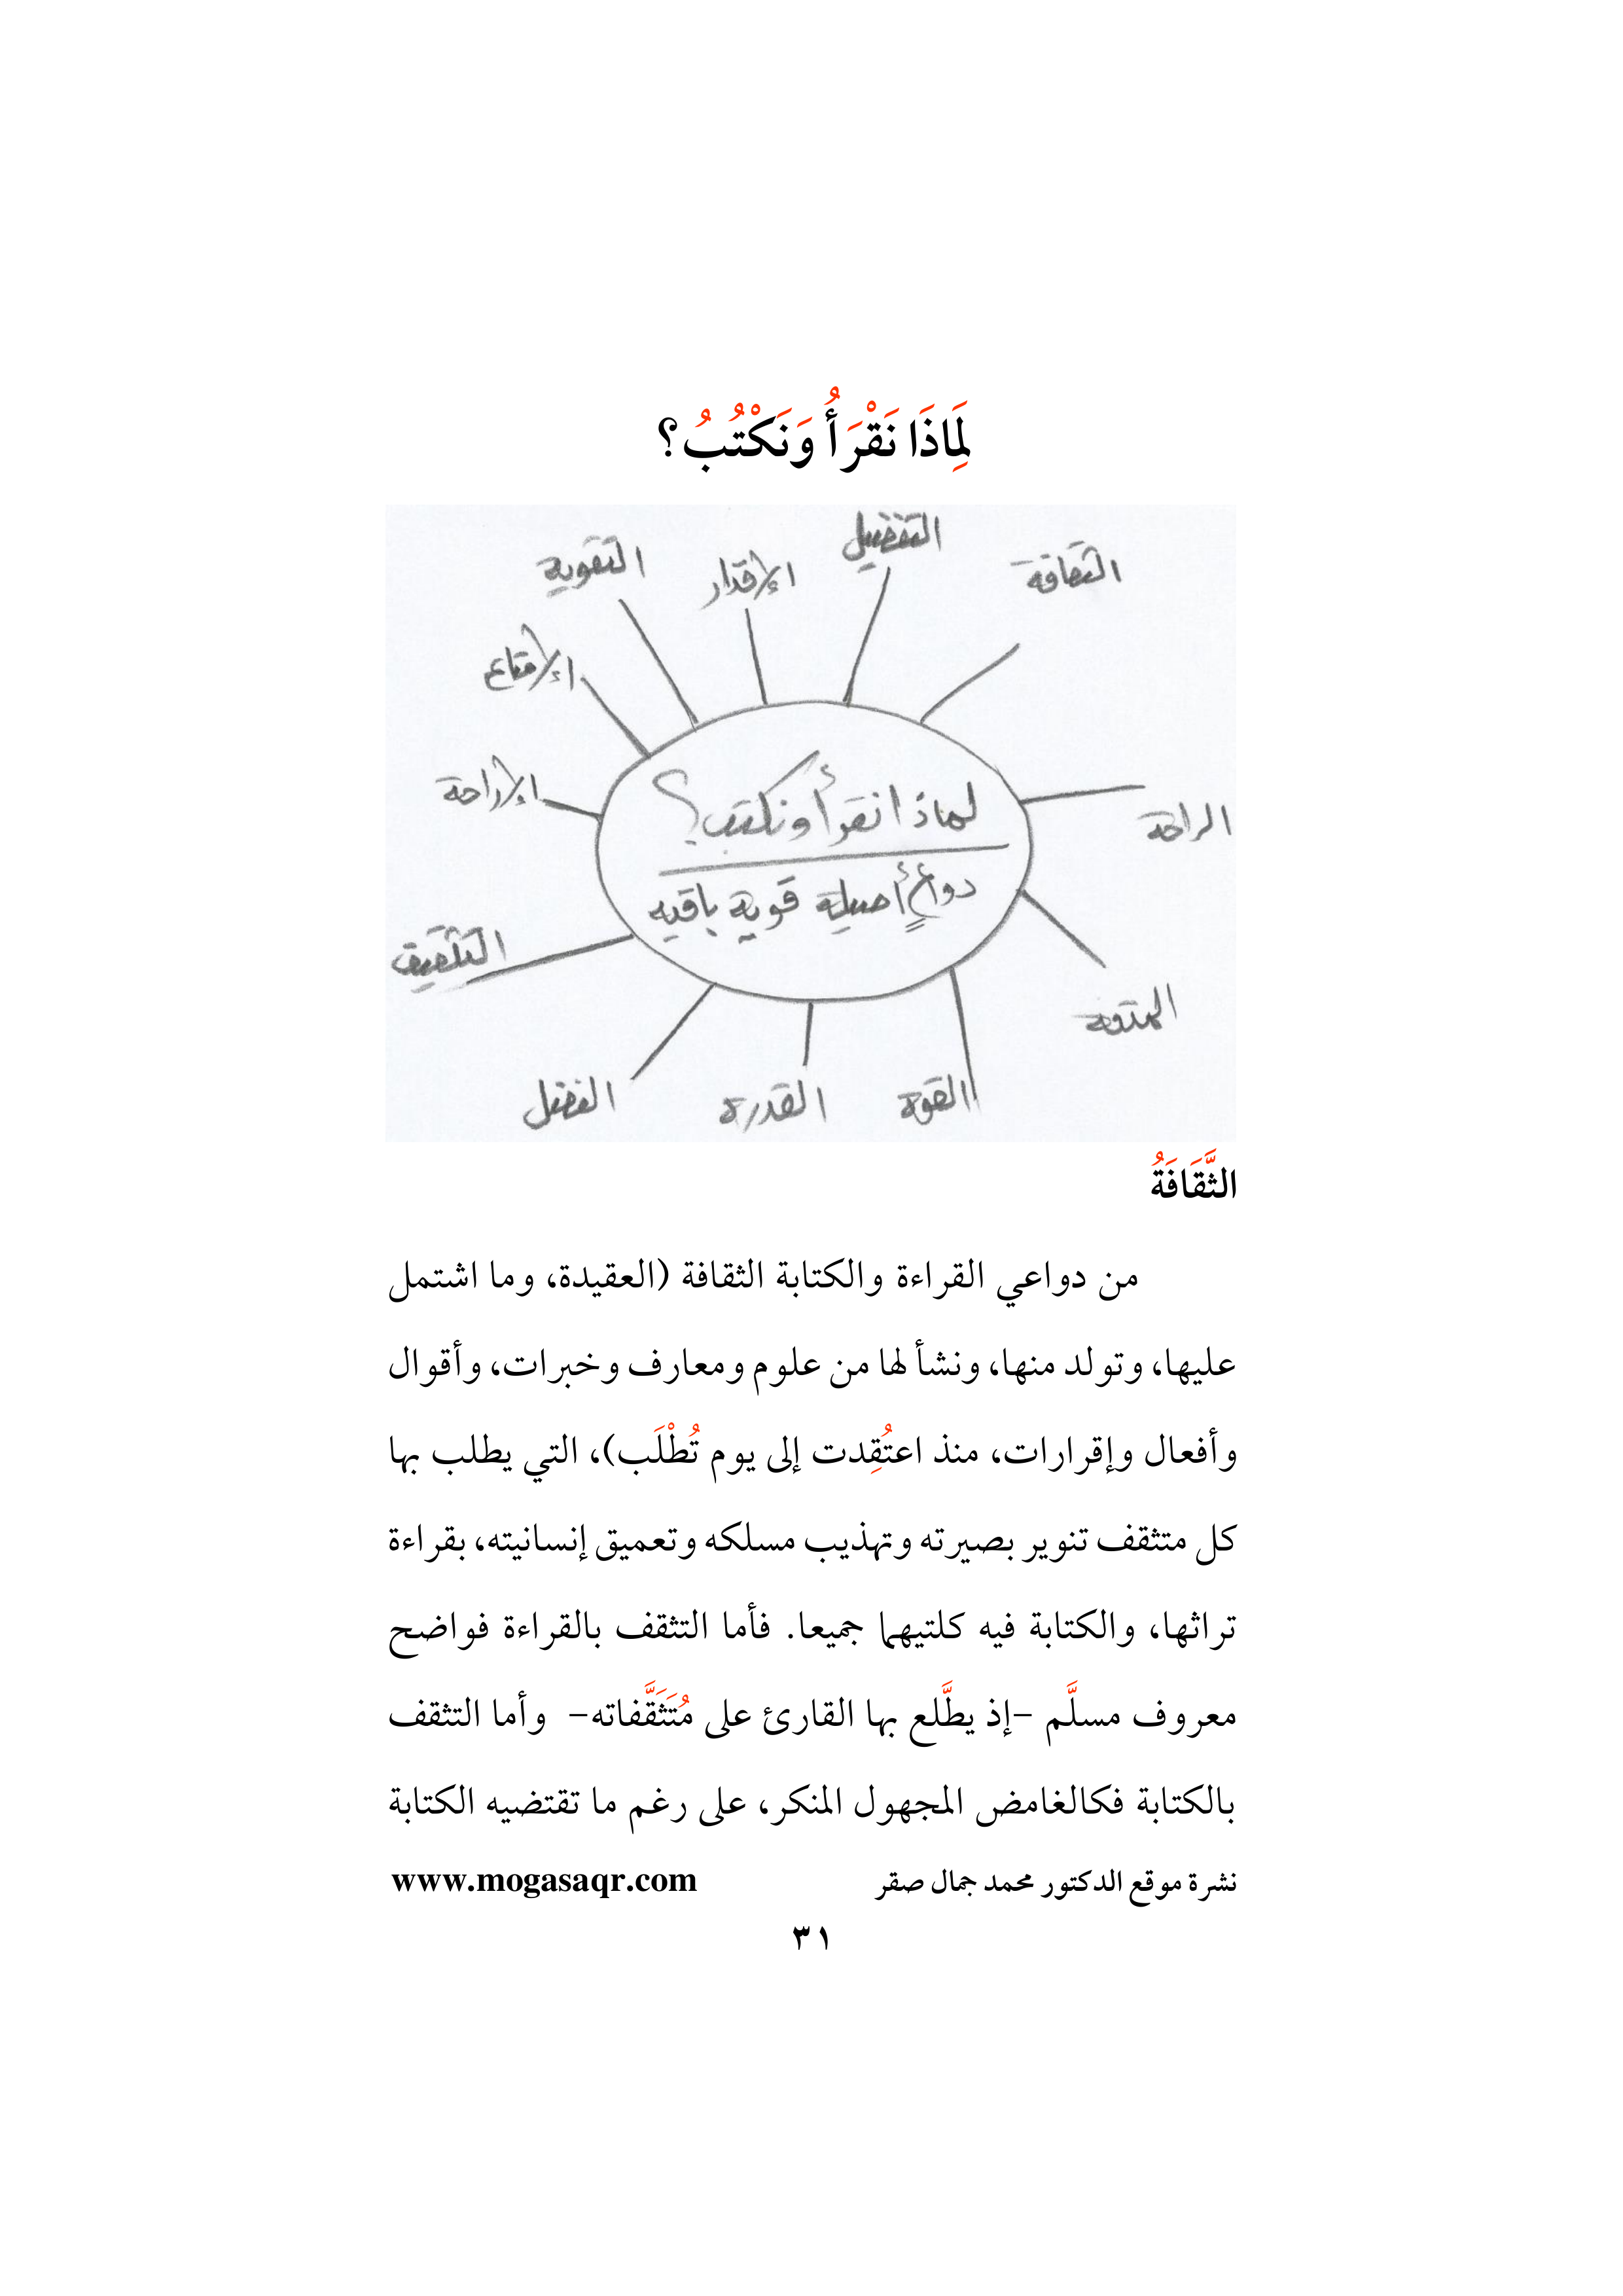 لِمَاذَا نَقْرَأُ وَنَكْتُبُ؟
التفضيل
الثقافة
الإقدار
التقوية
الإمتاع
الإراحة
الراحة
لماذا نقرأ ونكتب؟
دواعٍ أصيلة قوية باقية
التثقيف
المتعة
القوة
القدرة
الفضل
الثَّقَافَةُ
من دواعي القراءة والكتابة الثقافة (العقيدة، وما اشتمل
عليها، وتولد منها، ونشأ لها من علوم ومعارف وخبرات، وأقوال
وأفعال وإقرارات، منذ اعتُقِدت إلى يوم تُطْلَب)، التي يطلب بها
كل متثقف تنوير بصيرته وتهذيب مسلكه وتعميق إنسانيته، بقراءة
تراثها، والكتابة فيه كلتيهما جميعا. فأما التثقف بالقراءة فواضح
معروف مسلَّم -إذ يطَّلع بها القارئ على مُتَثَقَّفاته- وأما التثقف
بالكتابة فكالغامض المجهول المنكر، على رغم ما تقتضيه الكتابة
نشرة موقع الدكتور محمد جمال صقر www.mogasaqr.com
٣١